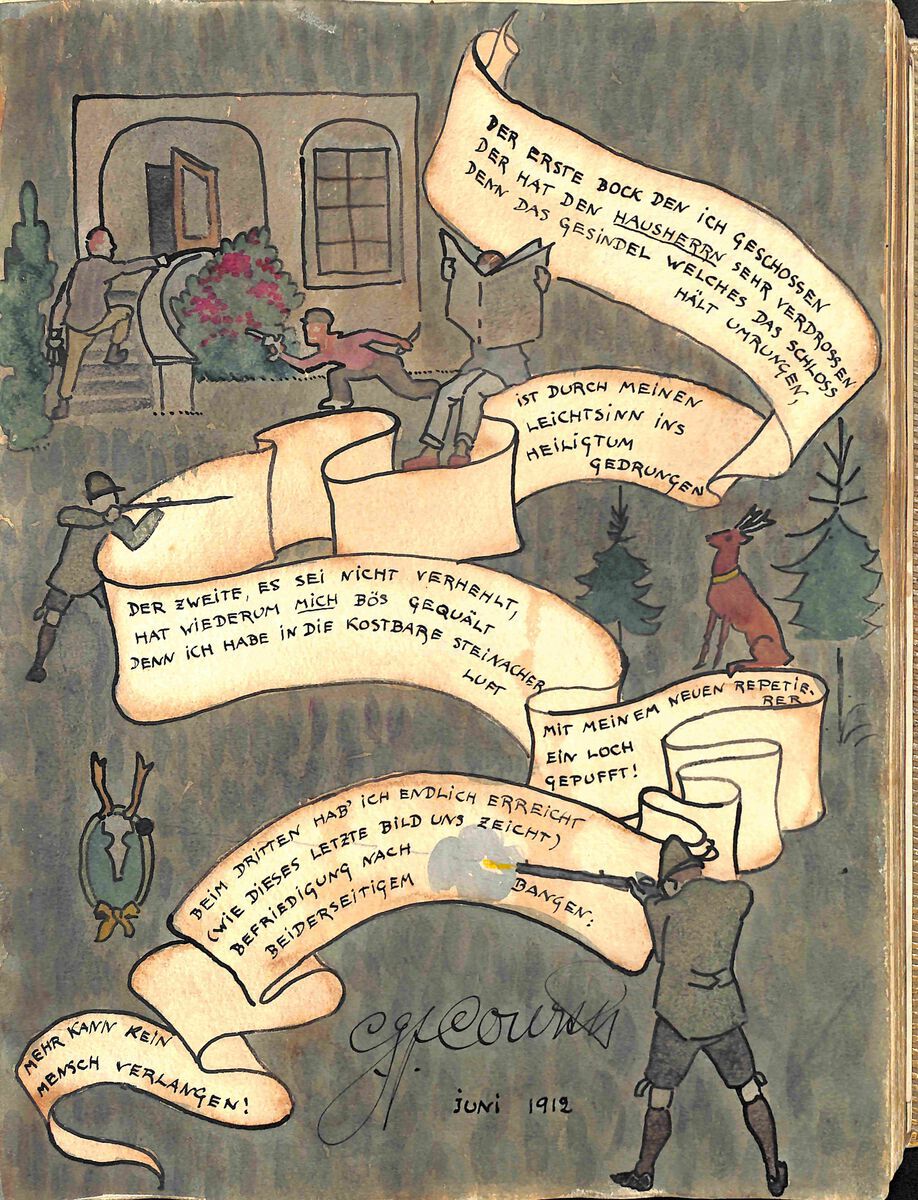 DER ERSTE BOCK DEN ICH GESCHOSSEN
DER HAT DEN HAUSHERRN SEHR VERDROSSEN
DENN DAS GESINDEL WELCHES DAS SCHLOSS
HÄLT UMRUNGEN,
IST DURCH MEINEN
LEICHTSINN INS
HEILIGTUM
GEDRUNGEN
DER ZWEITE, ES SEI NICHT VERHEHLT,
HAT WIEDERUM MICH BÖS GEQUÄLT
DENN ICH HABE IN DIE KOSTBARE STEINACHER
LUFT
MIT MEINEM NEUEN REPETIE-
RER
EIN LOCH
GEPUFFT!
BEIM DRITTEN HAB' ICH ENDLICH ERREICHT
(WIE DIESES LETZTE BILD UNS ZEICHT)
BEFRIEDIGUNG NACH
BEIDERSEITIGEM BANGEN:
MEHR KANN KEIN
MENSCH VERLANGEN!
JUNI 1912